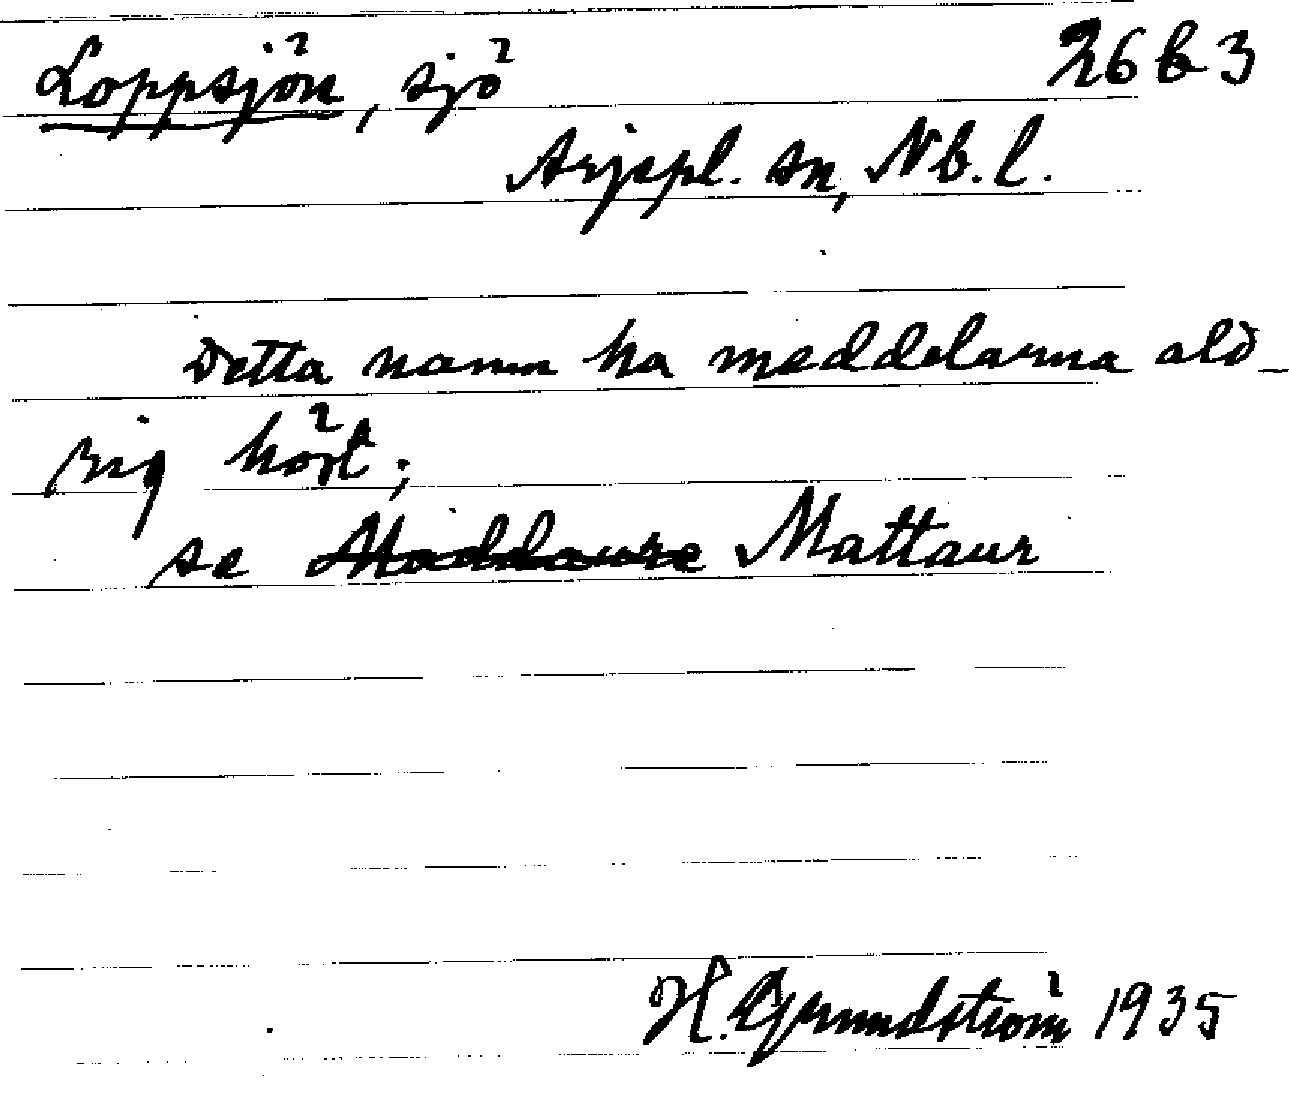 Loppsjön, sjö 26 b 3
Arjepl. sn, Nb. l.
Detta namn ha meddelarna ald-
rig hört;
se Maddaure Mattaur
H. Grundström 1935